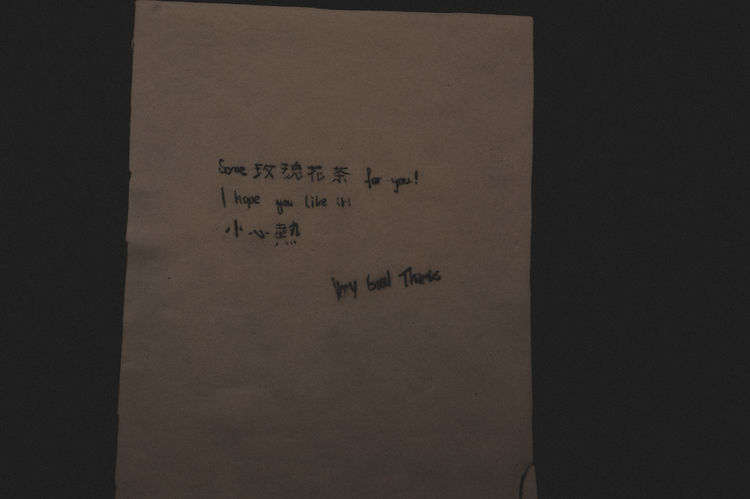 Some 玫瑰花茶 for you!
I hope you like it!
小心熱
Very Good Thanks